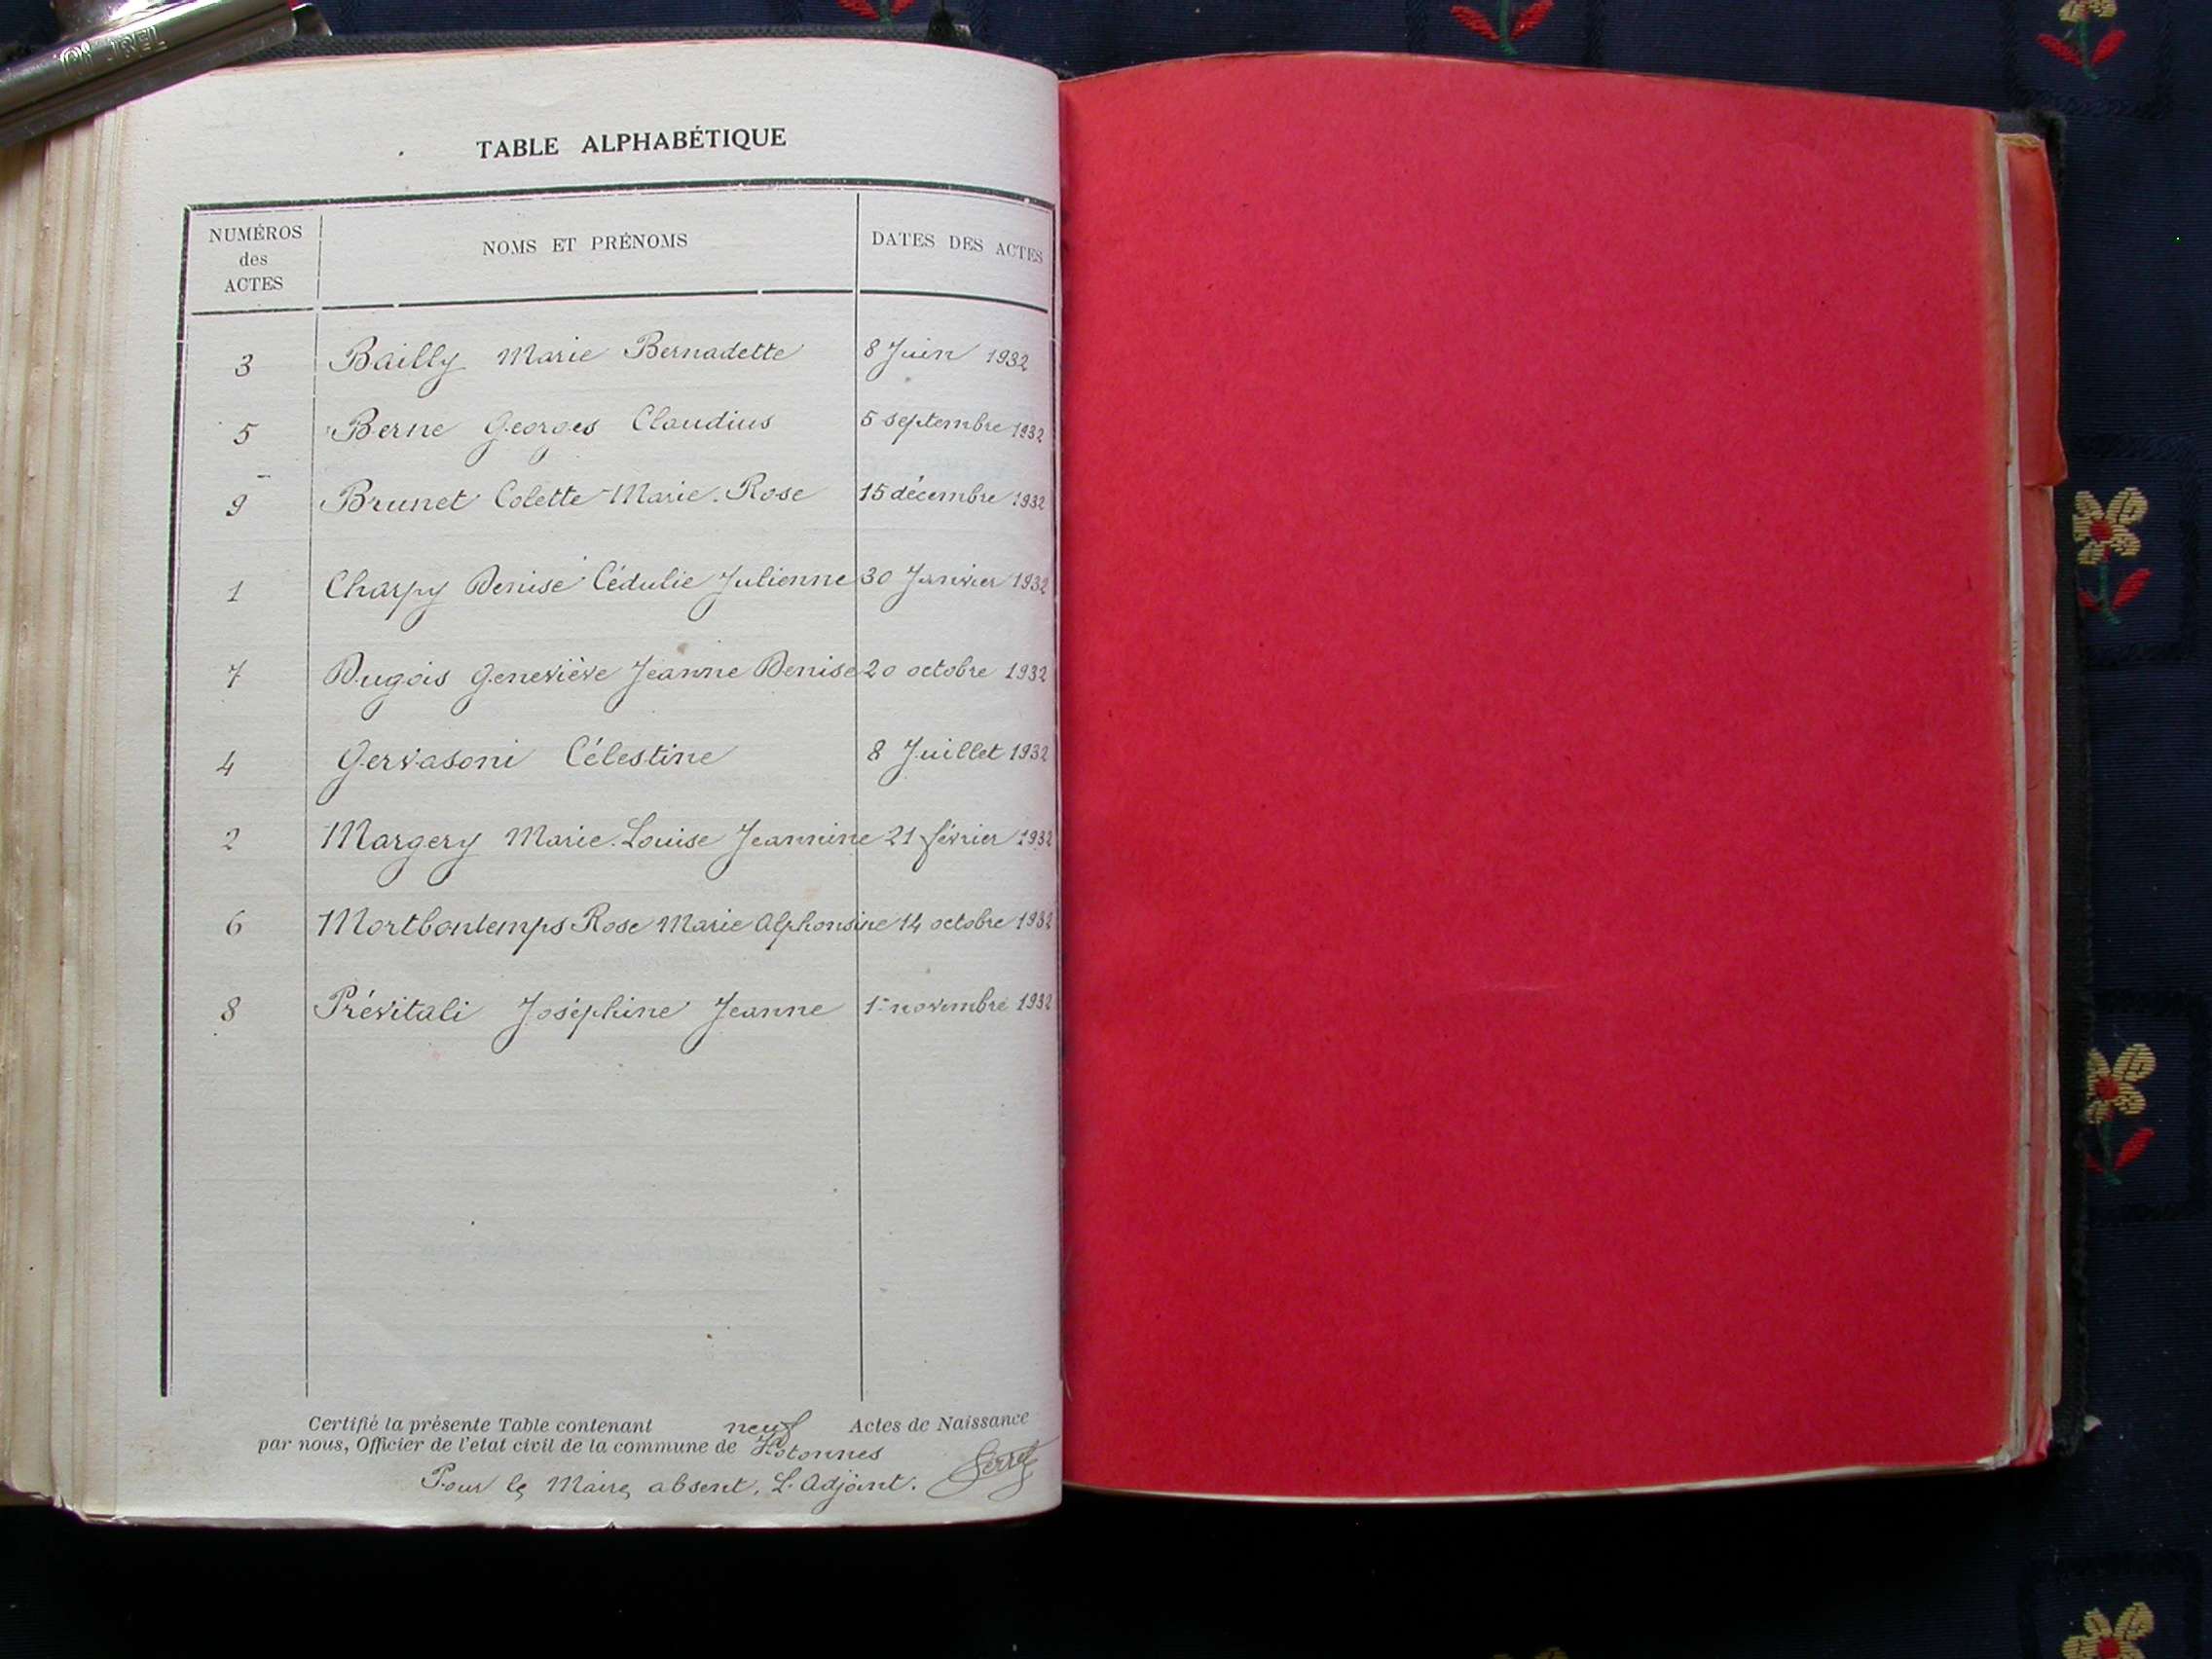 TABLE ALPHABÉTIQUE
NUMÉROS des ACTES NOMS ET PRÉNOMS DATES DES ACTES
3 Bailly Marie Bernadette 8 Juin 1932
5 Berne Georges Claudius 5 septembre 1932
9 Brunet Colette Marie-Rose 15 décembre 1932
1 Charpy Denise Cédulie Julienne 30 Janvier 1932
7 Dugois Geneviève Jeanne Denise 20 octobre 1932
4 Gervasoni Célestine 8 Juillet 1932
2 Margery Marie-Louise Jeannine 21 février 1932
6 Mortbontemps Rose Marie Alphonsine 14 octobre 1932
8 Prévitali Joséphine Jeanne 1er novembre 1932
Certifié la présente Table contenant neuf Actes de Naissance
par nous, Officier de l'etat civil de la commune de Hotonnes
Pour le Maire absent, L'Adjoint.